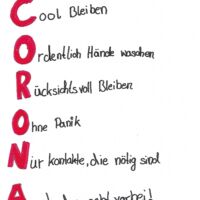 Cool Bleiben
Ordentlich Hände waschen
Rücksichtsvoll Bleiben
Ohne Panik
Nur kontakte, die nötig sind
A